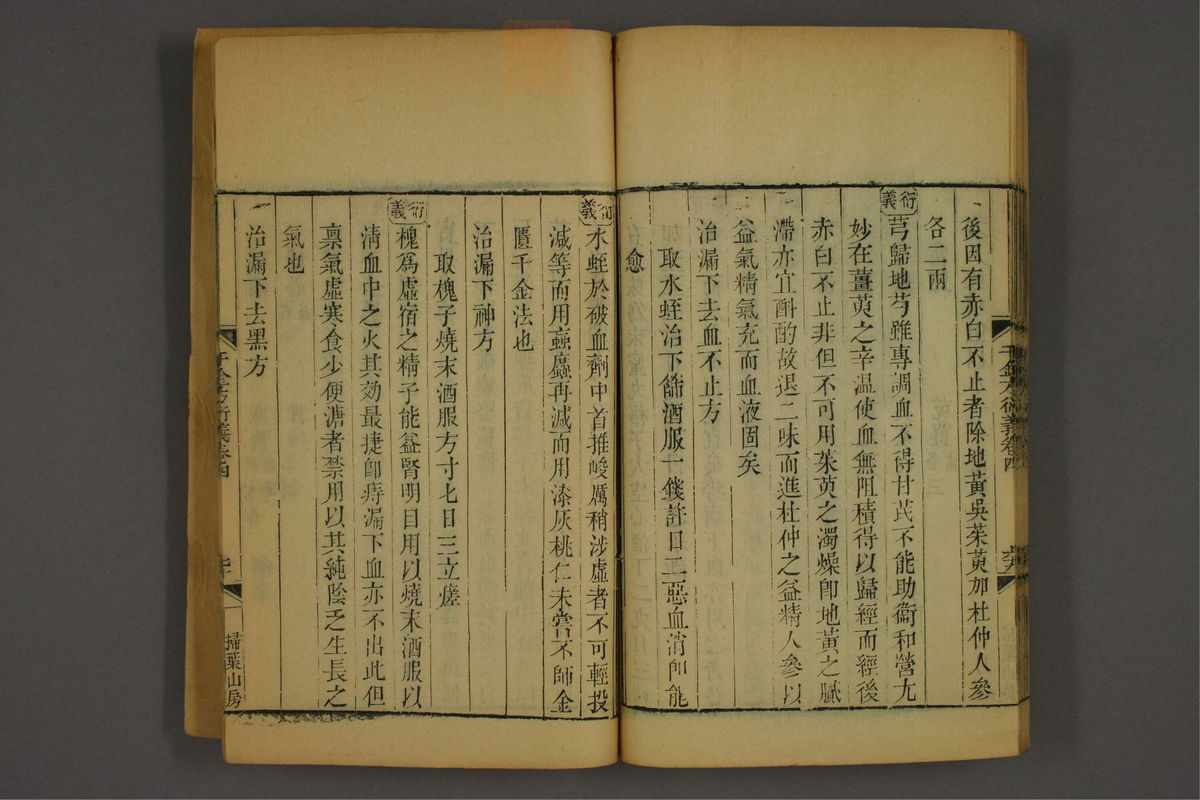 後因有赤白不止者除地黃吳茱萸加杜仲人參
各二兩
衍義 芎歸地芍雖專調血不得甘芪不能助衞和營尢
妙在薑萸之辛温使血無阻積得以歸經而經後
赤白不止非但不可用茱萸之濁燥卽地黃之膩
滯亦宜斟酌故退二味而進杜仲之益精人參以
益氣精氣充而血液固矣
治漏下去血不止方
取水蛭治下篩酒服一錢許日二惡血消卽能
愈
衍義 水蛭於破血劑中首推峻厲稍涉虛者不可輕投
減等而用蝱䗪再減而用漆灰桃仁未嘗不師金
匱千金法也
治漏下神方
取槐子燒末酒服方寸匕日三立瘥
衍義 槐爲虛宿之精子能益腎明目用以燒末酒服以
淸血中之火其効最捷卽痔漏下血亦不出此但
禀氣虛寒食少便溏者禁用以其純陰乏生長之
氣也
治漏下去黑方
千金方衍義卷四
掃葉山房